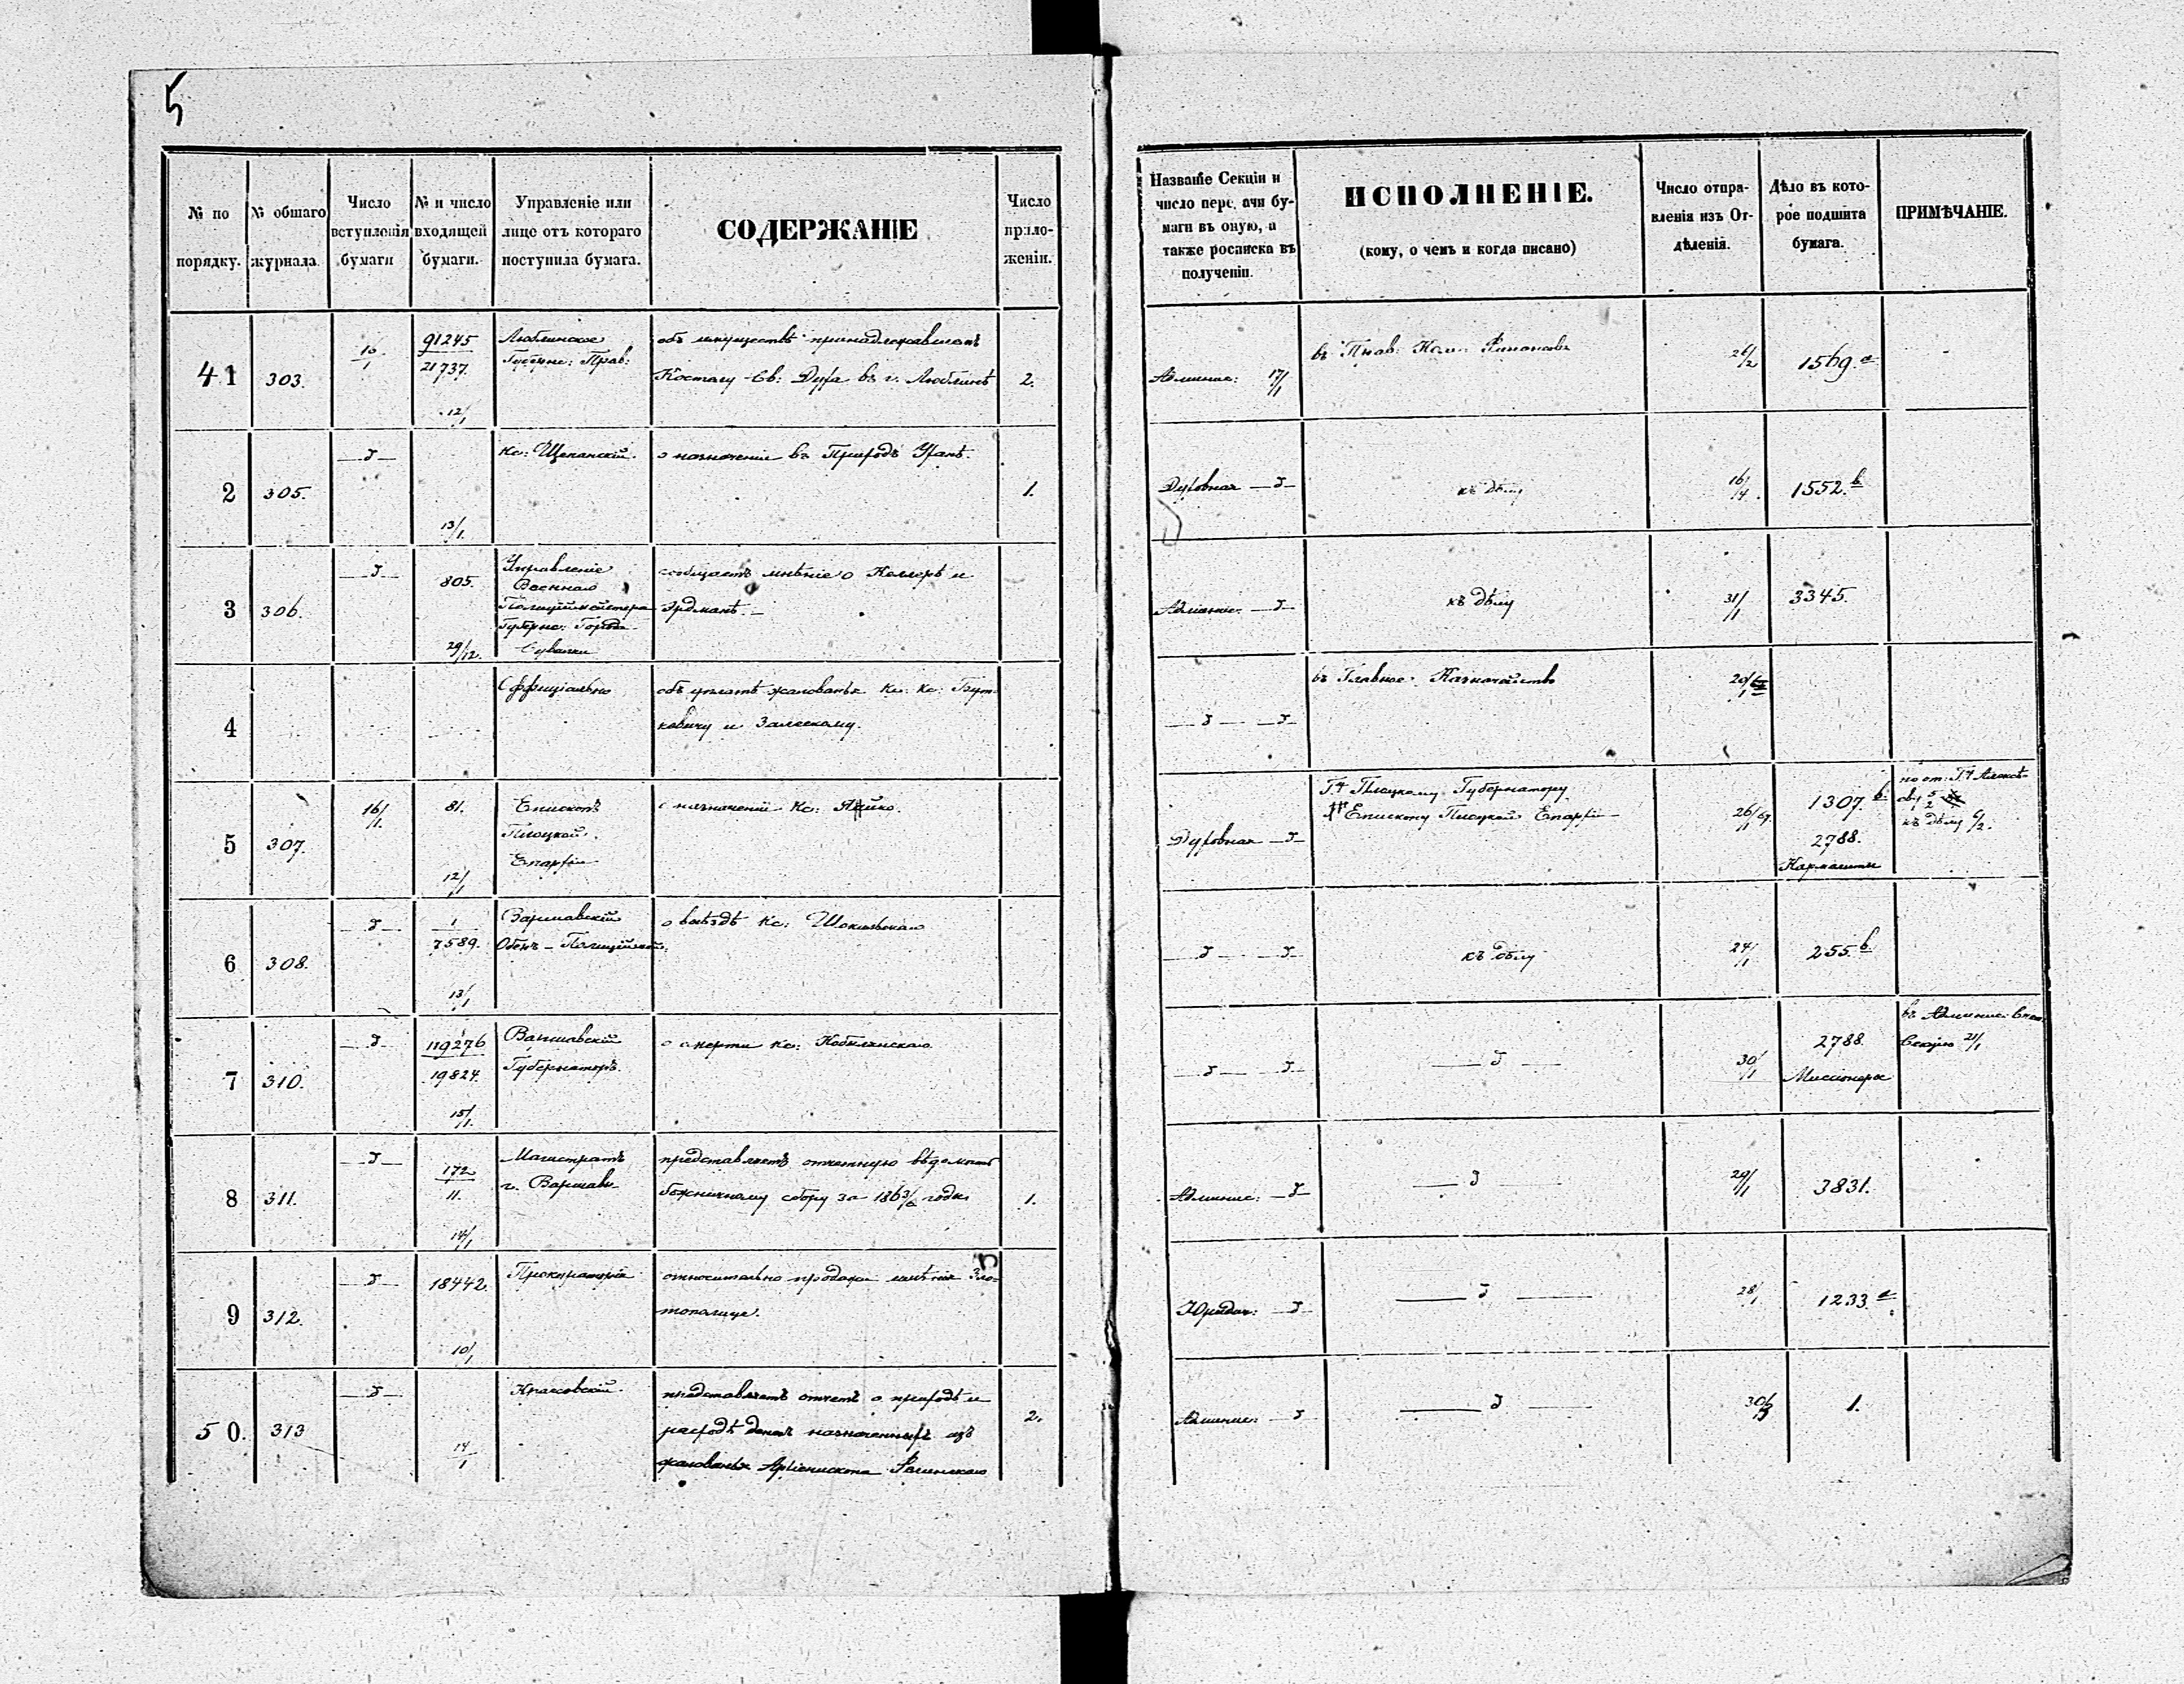 5
№ по порядку.
№ общаго журнала.
Число вступленія бумаги
№ и число входящей бумаги.
Управленіе или лице отъ котораго поступила бумага.
СОДЕРЖАНІЕ
Число приложеніи.
Названіе Секціи и число передачи бумаги въ оную, а также росписка въ полученіи.
ИСПОЛНЕНІЕ.
(кому, о чемъ и когда писано)
Число отправленія изъ Отдѣленія.
Дѣло въ которое подшита бумага.
ПРИМѢЧАНІЕ.
41 303. 91245 21737. 12/1
Люблинское
Губерн: Прав:
объ имуществѣ принадлежавшемъ
Косталу Св: Духа въ г. Люблинѣ
2.
Админис: 17/1
въ Прав: Ком: Финансовъ
26/2 1569. a
2 305. 13/1.
Кс: Щепанскій.
о назначеніи въ Приходъ
1.
Духовная
къ дѣлу
16/4. 1552. b
3 306. 805. 29/12.
Управленіе
Военнаго
Полиціймейстера
Губернс: Города
Сувалки
сообщаетъ мнѣніе о Келлерѣ и
Эрдманѣ.
Админис:
къ дѣлу
31/1 3345.
4
Оффиціально
объ уплатѣ жалованья Кс: Кс: Бут-
кевичу и Залескому.
въ Главное Казначейство
20/1
5 307. 16/1. 81. 12/1
Епископъ
Плоцкой
Епархіи
о назначеніи Кс:
Духовная
Гну Плоцкому Губернатору
Епископу Плоцкой Епархіи
26/1 67.
1307. b
2788.
къ дѣлу 6/2.
6 308. 1 7589. 13/1
Варшавскій
Оберъ-Полиціймей:
о выѣздѣ Кс:
къ дѣлу
24/1 255. b
7 310. 119276 19824. 15/1.
Варшавскій
Губернаторъ.
о смерти Кс: Кобылинскаго
30/1
2788.
Миссіонеры
въ Админис:
Секцію 21/1
8 311. 172 11. 14/1
Магистратъ
г. Варшавы
представляетъ отчетную вѣдомость
божничному сбору за 1863/4 годы
1.
Админис:
29/1 3831.
9 312. 18442. 10/1
Прокураторія
относительно продажи имѣнія Зло-
тополице.
Юридич:
28/1 1233. a
50. 313 14/1
Крассовскій.
представляетъ отчетъ о приходѣ и
расходѣ денегъ назначенныхъ изъ
жалованья Архіепископа Фелинскаго
2.
Админис:
1.